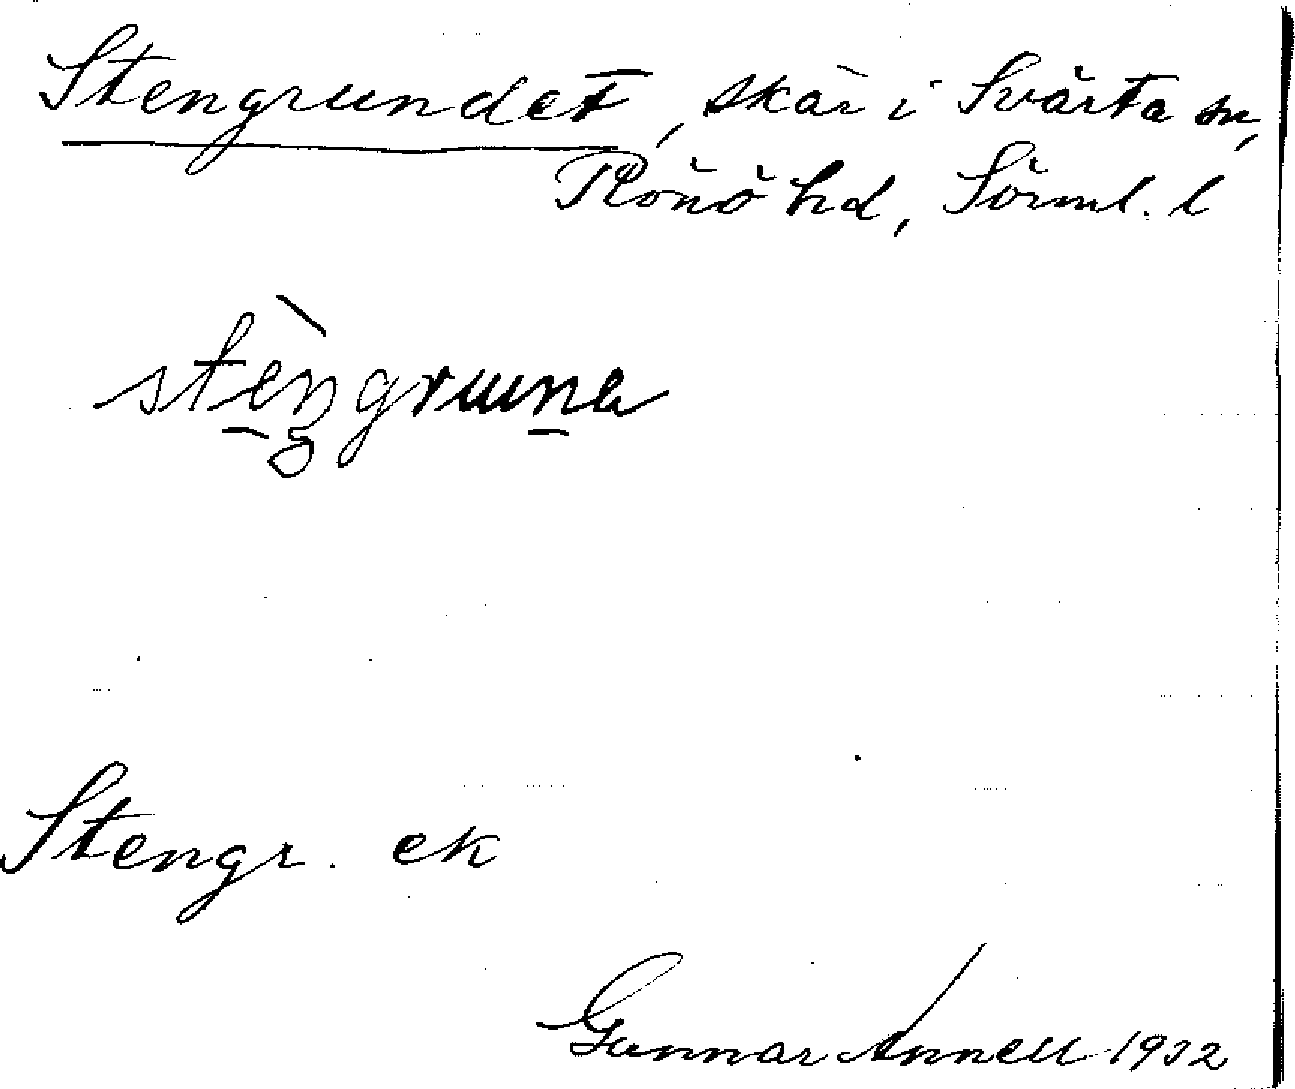 Stengrundet, skär i Svärta sn,
Rönö hd, Sörml. l
stèngruna
Stengr. ek
Gunnar Annell 1932